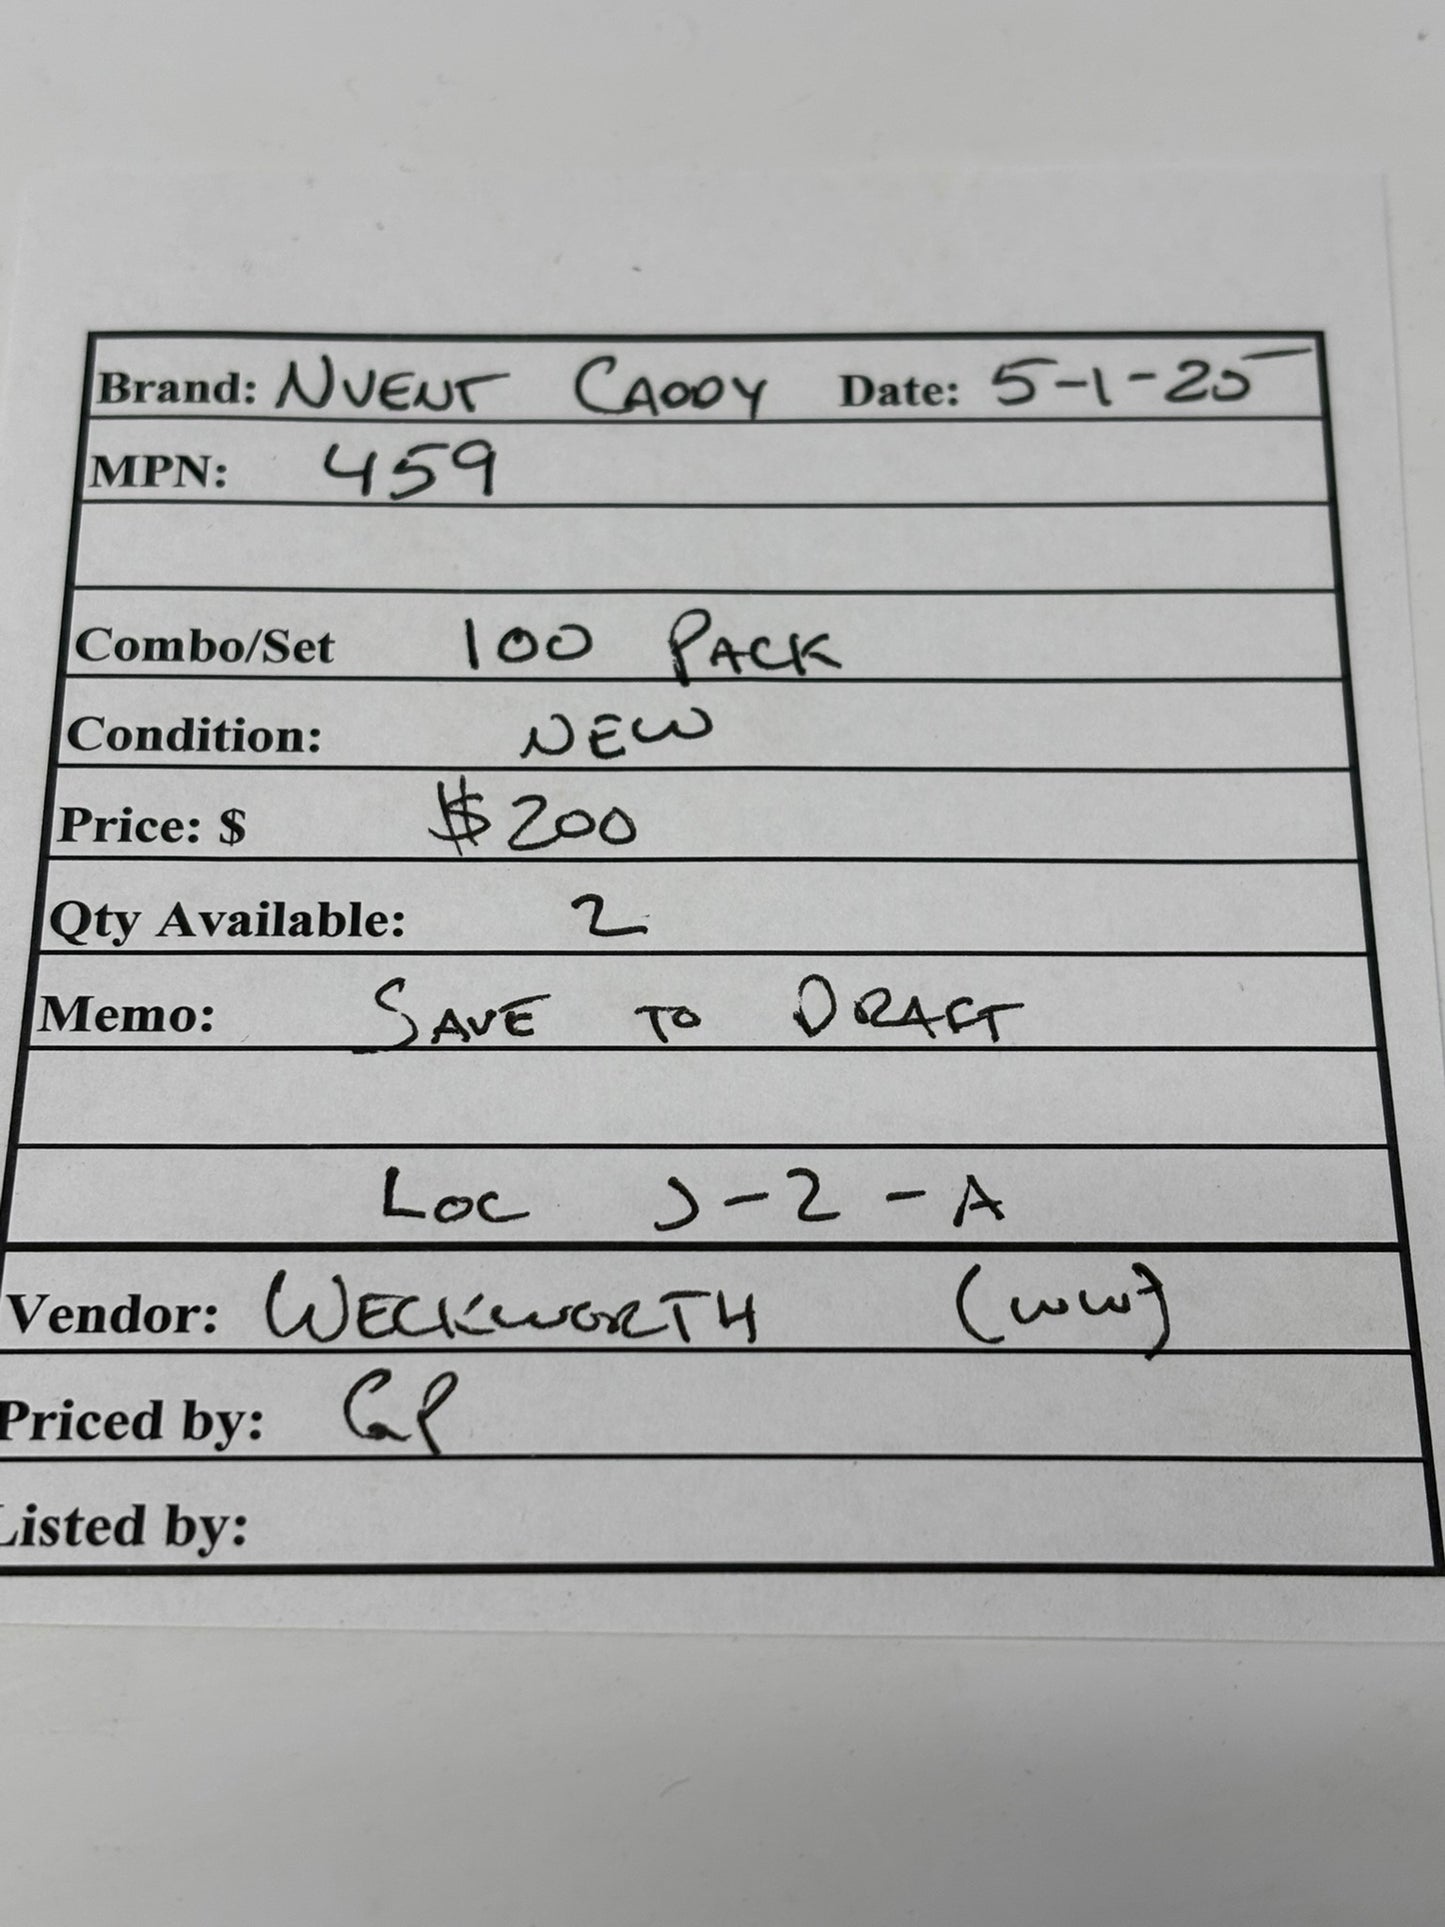 Brand: NVENT CADDY Date: 5-1-25
MPN: 459
Combo/Set 100 PACK
Condition: NEW
Price: $ $200
Qty Available: 2
Memo: SAVE TO DRAFT
LOC J-2-A
Vendor: WECKWORTH (WW)
Priced by: GP
Listed by: